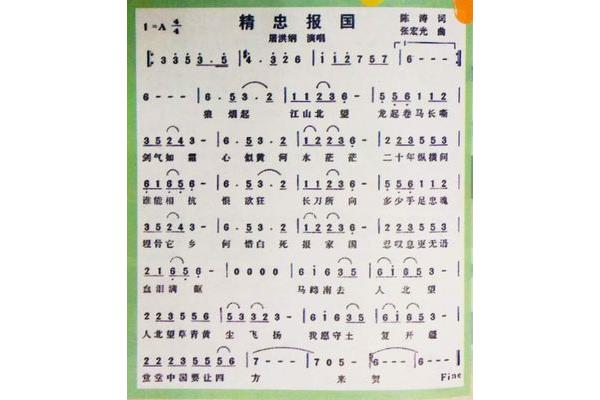 精忠报国
1=A 4/4
屠洪纲 演唱
陈涛 词
张宏光 曲
3 3 5 3 . 5 | 4 . 3 2 6 | 1 1 2 7 5 7 |
6 - - - | 6 . 5 3 . 2 | 1 1 2 2 3 6 - | 5 5 6 1 1 2
狼烟起 江山北望 龙起卷马长嘶
3 5 2 4 3 - | 6 . 5 3 . 2 | 1 2 2 3 6 - | 2 2 3 5 5 3
剑气如霜 心似黄河水茫茫 二十年纵横间
6 1 6 5 6 - | 6 . 5 3 . 2 - | 1 1 2 3 6 - | 5 5 6 1 1 2
谁能相抗 恨欲狂 长刀所向 多少手足忠魂
3 5 2 4 3 - | 6 . 5 3 . 2 | 1 2 2 3 6 - | 2 2 3 5 5 3
埋骨它乡 何惜白死报家国 忍叹息更无语
2 1 6 5 6 - | 0 0 0 0 | 6 1 6 3 5 | 6 1 6 5 3
血泪满眶 马蹄南去 人北望
2 2 2 3 5 5 | 5 3 3 2 3 - | 6 1 6 3 5 | 6 1 6 5 3
人北望草青黄 尘飞扬 我愿守土 复开疆
2 2 2 3 5 5 5 6 | 7 - - - | 7 0 5 - | 6 - - -
堂堂中国要让四方 来贺 Fine